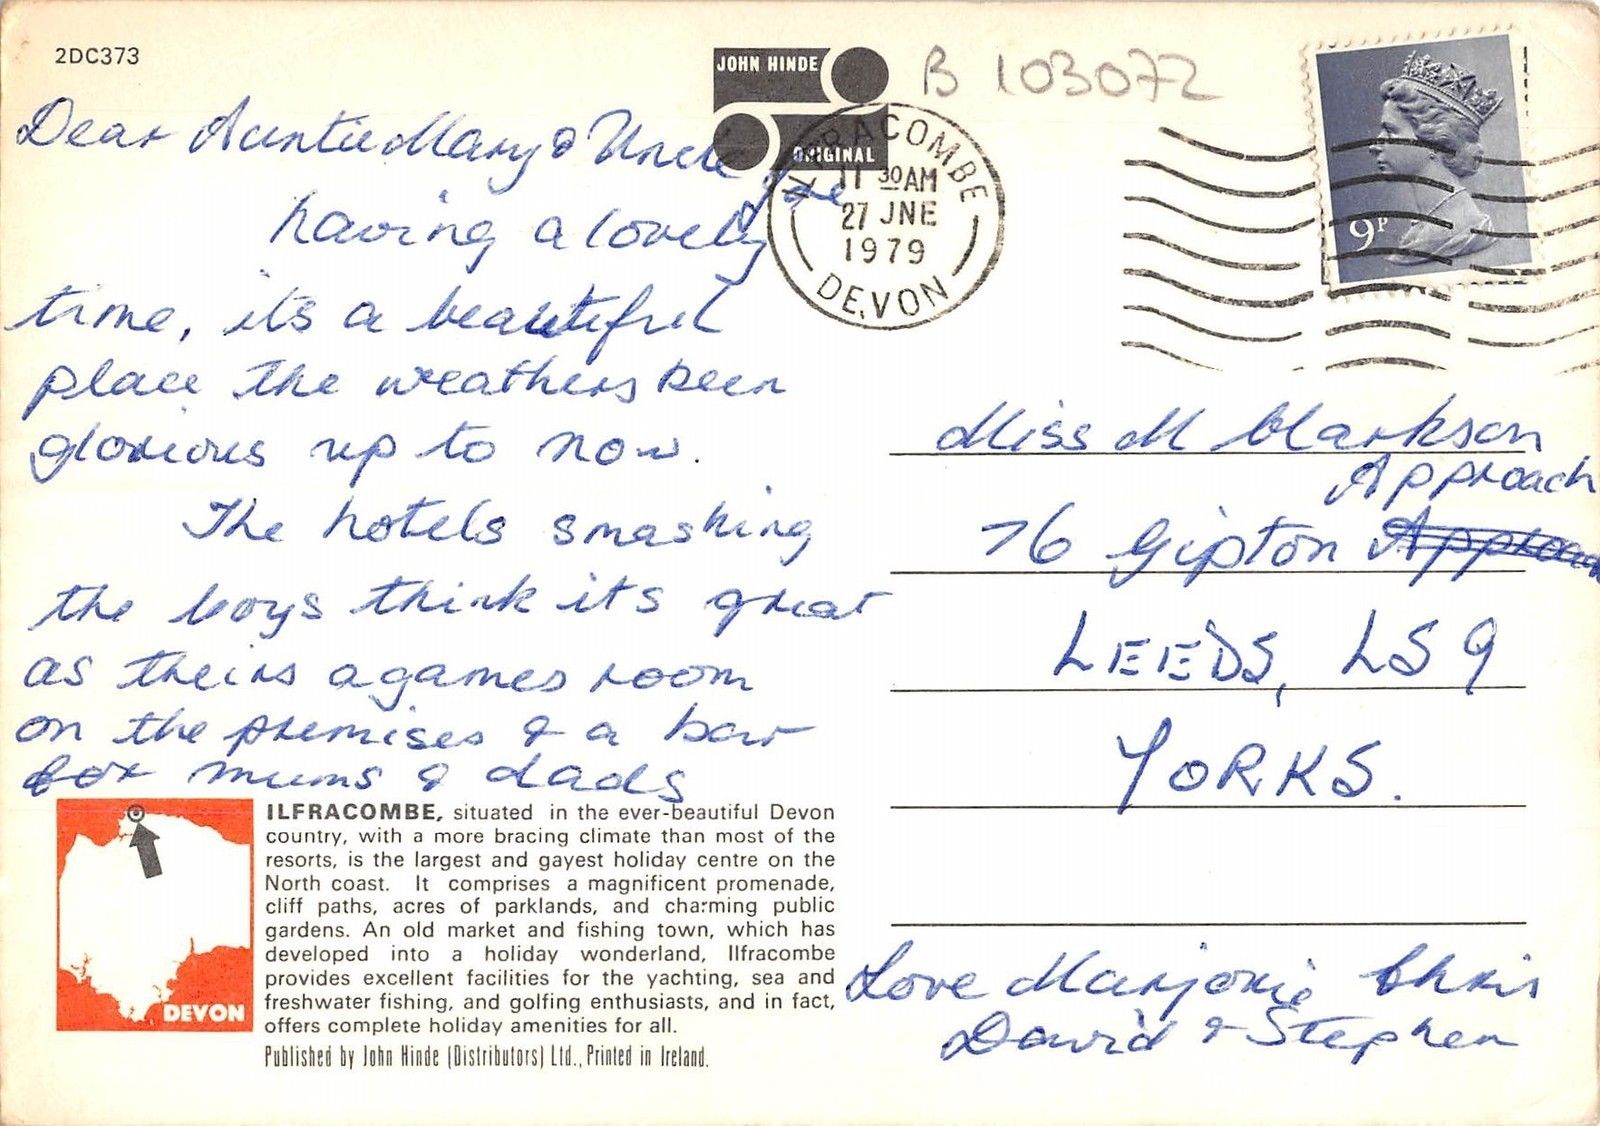 2DC373
JOHN HINDE
ORIGINAL
B 103072
ILFRACOMBE
11 30 AM
27 JNE
1979
DEVON
9P
Dear Auntie Mary & Uncle Joe
having a lovely
time, it's a beautiful
place the weathers been
glorious up to now.
The hotels smashing
the boys think its great
as theirs a games room
on the premises & a bar
for mums & dads
Miss M Clarkson
Approach
76 Gipton Approach
LEEDS, LS9
YORKS.
Love Marjorie Chris
David & Stephen
DEVON
ILFRACOMBE, situated in the ever-beautiful Devon
country, with a more bracing climate than most of the
resorts, is the largest and gayest holiday centre on the
North coast. It comprises a magnificent promenade,
cliff paths, acres of parklands, and charming public
gardens. An old market and fishing town, which has
developed into a holiday wonderland, Ilfracombe
provides excellent facilities for the yachting, sea and
freshwater fishing, and golfing enthusiasts, and in fact,
offers complete holiday amenities for all.
Published by John Hinde (Distributors) Ltd., Printed in Ireland.